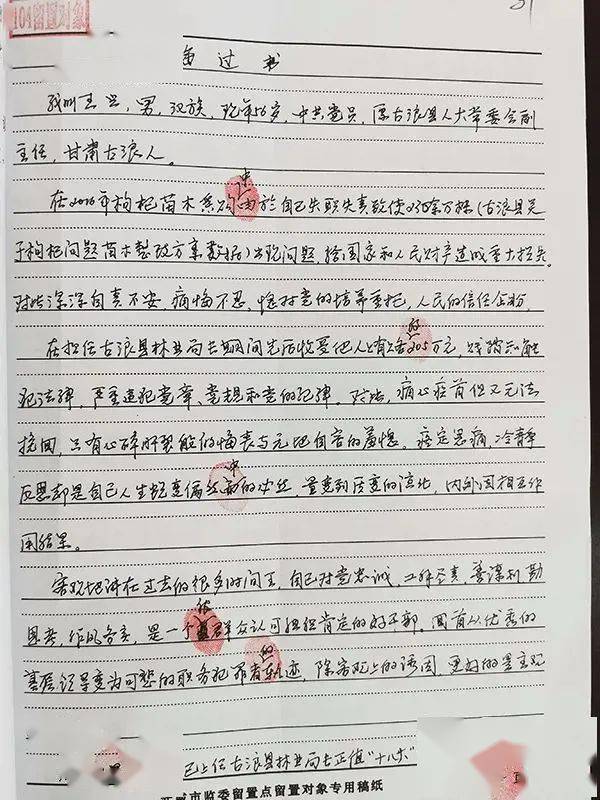 104留置对象
悔过书
我叫王兴，男，汉族，现年56岁，中共党员，原古浪县人大常委会副
主任，甘肃古浪人。
在2016年枸杞苗木采购中由於自己失职失责致使2350余万株（古浪县关
于枸杞问题苗木整改方案数据）出现问题，给国家和人民财产造成重大损失。
对此深深自责不安，痛悔不已，愧对党的培养重托，人民的信任企盼，
在担任古浪县林业局长期间先后收受他人上有上合的205万元，践踏和触
犯法律，严重违犯党章、党规和党的纪律。对此，痛心疾首但又无法
挽回，只有心碎肝裂般的悔丧与无地自容的羞愧。痛定思痛，冷静
反思却是自己人生蜕变偏丝中的必然，量变到质变的演化，内外因相互作
用结果。
客观地讲在过去的很多时间里，自己对党忠诚，工作尽责，善谋利勤
思考，作风务实，是一个被群众认可组织肯定的好干部。回首从优秀的
基层领导变为可憎的职务犯罪者的轨迹，除客观上的诱因，更多的是主观
已上任古浪县林业局长正值“十八大”
市监委留置点留置对象专用稿纸